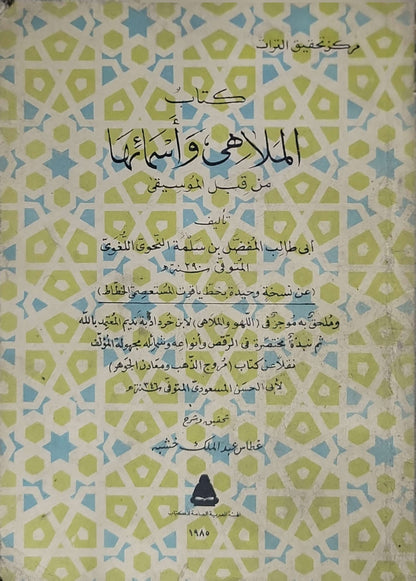 مركز تحقيق التراث
كتاب
الملاهي وأسمائها
من قبل الموسيقى
تأليف
أبي طالب المفضل بن سلمة النحوي اللغوي
المتوفى سنة ٢٩٠ هـ
(عن نسخة وحيدة بخط ياقوت المستعصمي الخطاط)
وملحق به موجز في (اللهو والملاهي) لابن خرداذبة نديم المعتمد بالله
ثم نبذة مختصرة في الرقص وأنواعه وشمائله مجهولة المؤلف
نقلا عن كتاب (مروج الذهب ومعادن الجوهر)
لأبي الحسن المسعودي المتوفى سنة ٣٤٦ هـ
تحقيق وشرح
غطاس عبد الملك خشبة
الهيئة المصرية العامة للكتاب
١٩٨٥